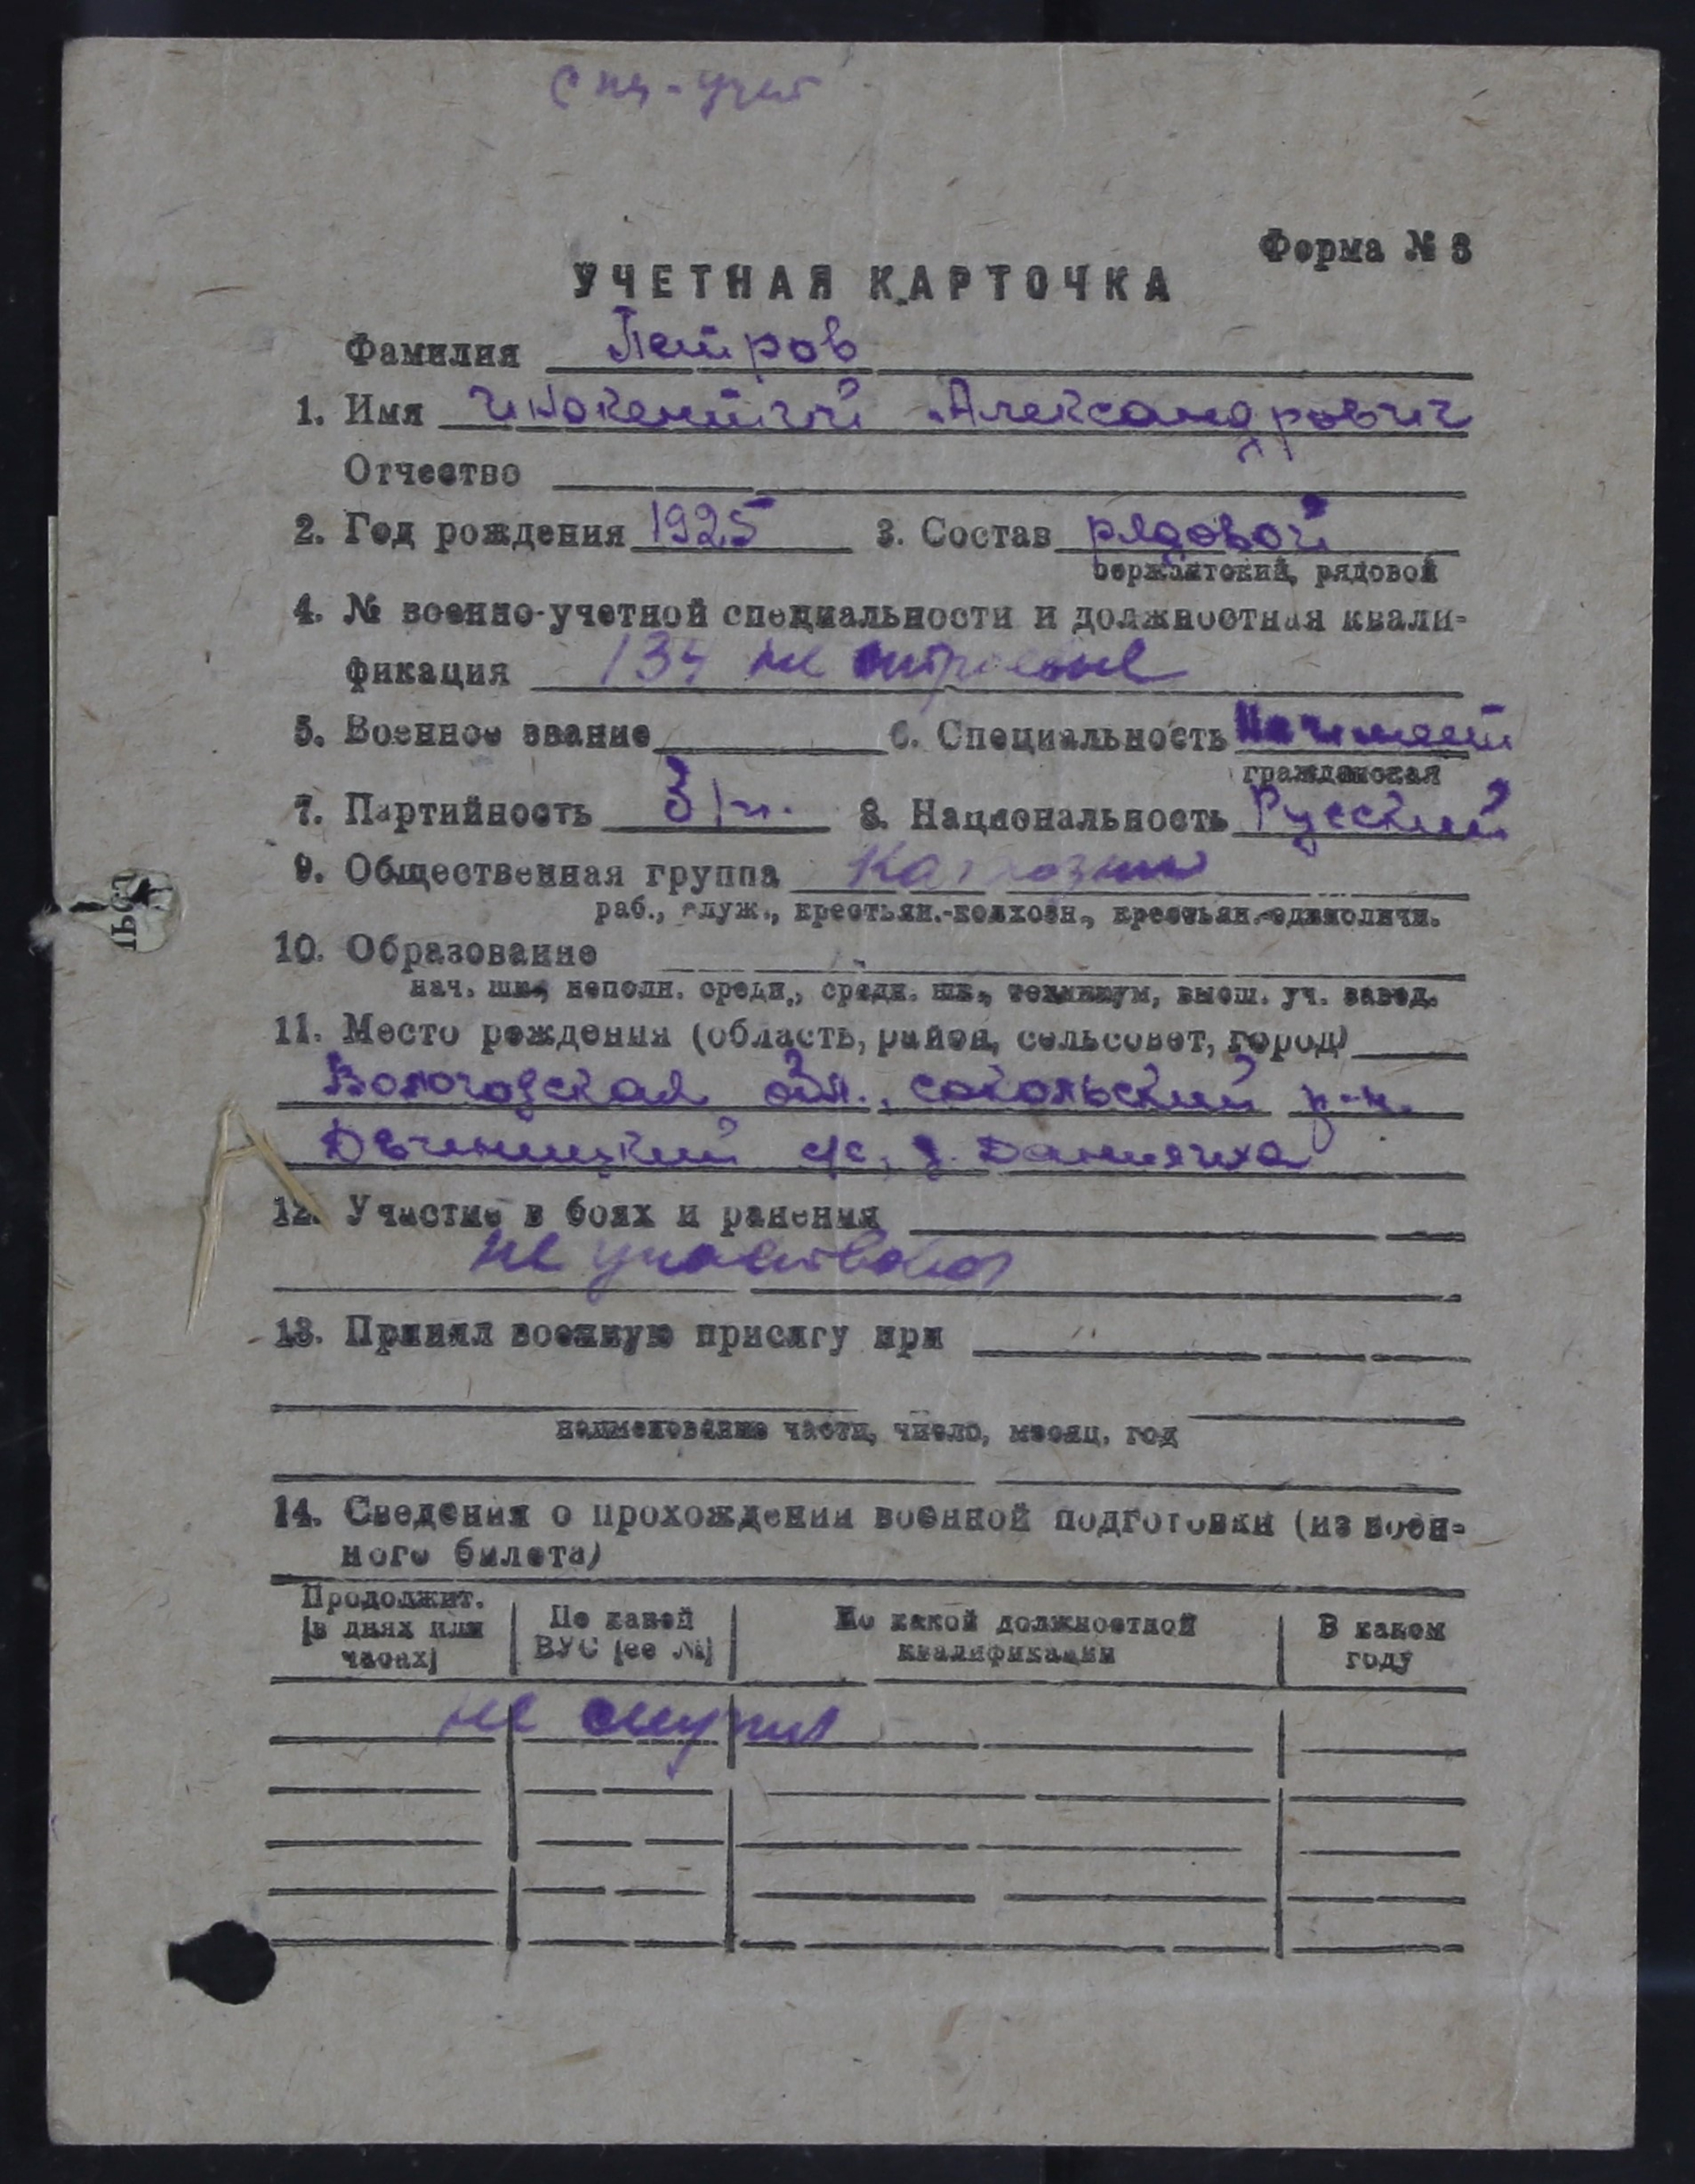 спц-учет
Форма № 3
УЧЕТНАЯ КАРТОЧКА
Фамилия Петров
1. Имя Инокентий Александрович
Отчество
2. Год рождения 1925 3. Состав рядовой
сержантский, рядовой
4. № военно-учетной специальности и должностная квали-
фикация 134 не
5. Военное звание 6. Специальность
гражданская
7. Партийность 8. Национальность Русский
9. Общественная группа Колхозник
раб., служ., крестьян.-колхозн., крестьян.-единоличн.
10. Образование
нач. шк., неполн. средн., средн. шк., техникум, высш. уч. завед.
11. Место рождения (область, район, сельсовет, город)
Вологодская обл., сокольский р-н.
с/с, д. Данилиха
12. Участие в боях и ранения
не участвовал
13. Принял военную присягу при
наименование части, число, месяц, год
14. Сведения о прохождении военной подготовки (из воен-
ного билета)
Продолжит. (в днях или часах) По какой ВУС (ее №) По какой должностной квалификации В каком году
не служил